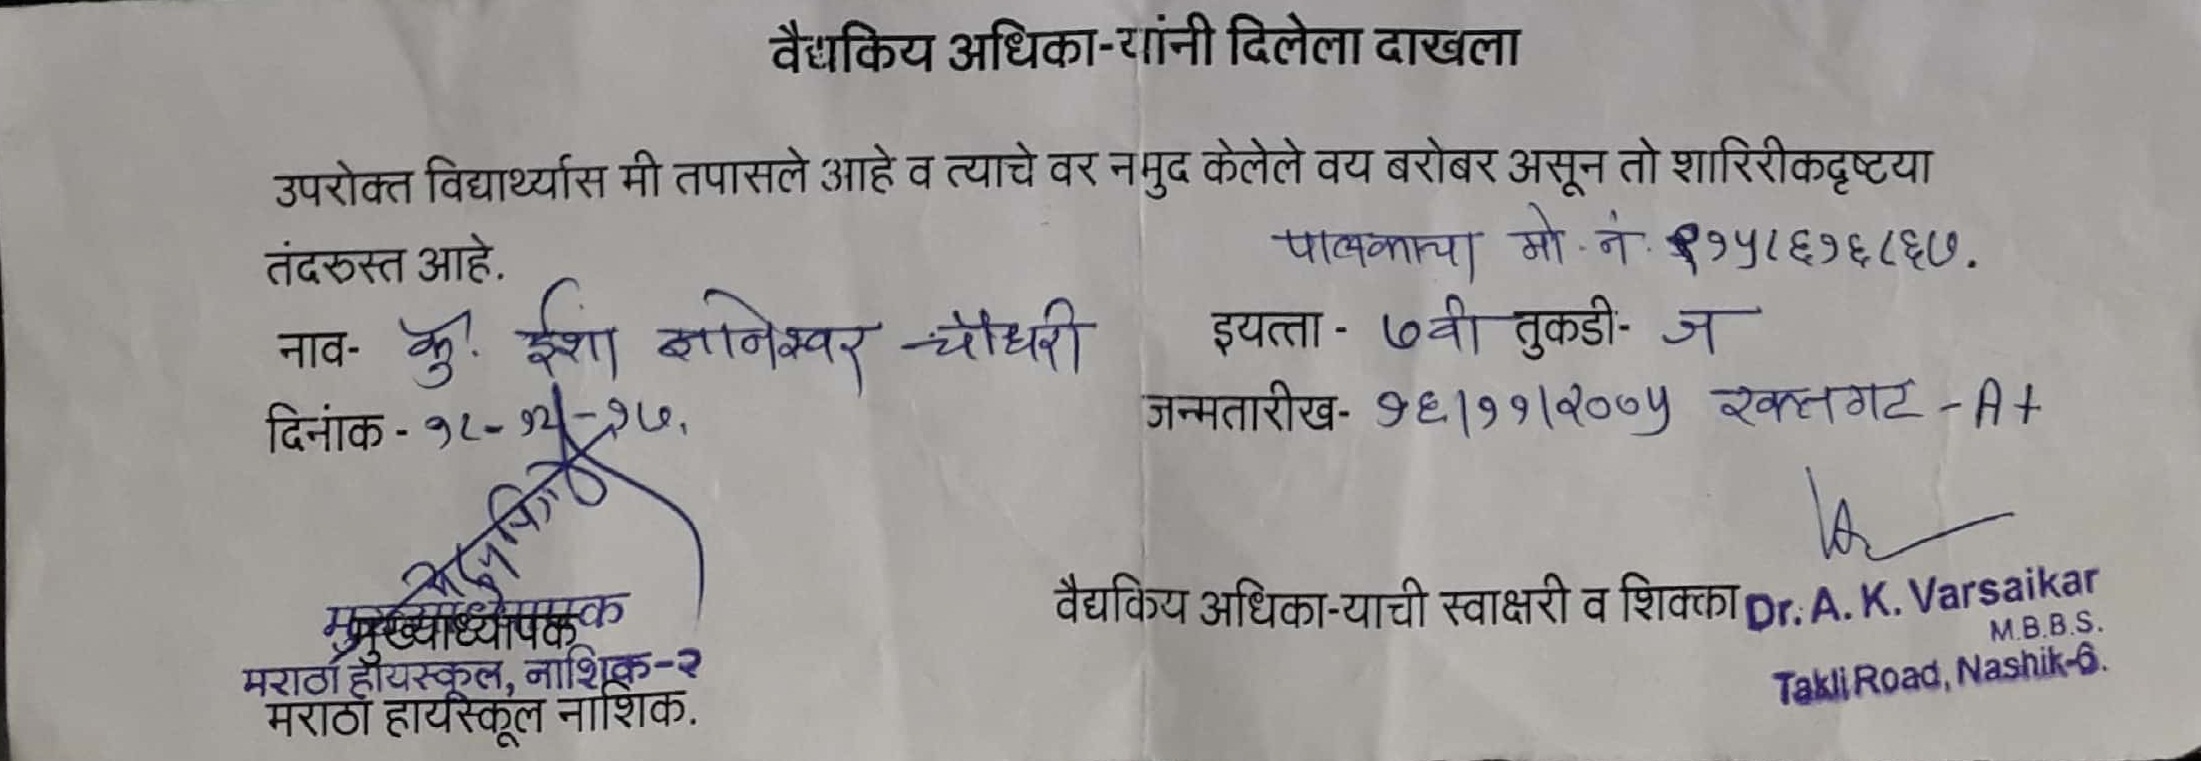 वैद्यकिय अधिका-यांनी दिलेला दाखला
उपरोक्त विद्यार्थ्यास मी तपासले आहे व त्याचे वर नमुद केलेले वय बरोबर असून तो शारिरीकदृष्टया
तंदरुस्त आहे.
पालकाचा मो. नं. ९१५८६१६८६७.
नाव- कु. ईशा ज्ञानेश्वर चौधरी इयत्ता - ७वी तुकडी- ज
दिनांक - १८-१२-१७. जन्मतारीख- १६/११/२००५ रक्तगट - A+
वैद्यकिय अधिका-याची स्वाक्षरी व शिक्का Dr. A. K. Varsaikar
M.B.B.S.
Takli Road, Nashik-6.
मुख्याध्यापक
मुख्याध्यापक
मराठा हायस्कूल, नाशिक-२
मराठा हायस्कूल नाशिक.